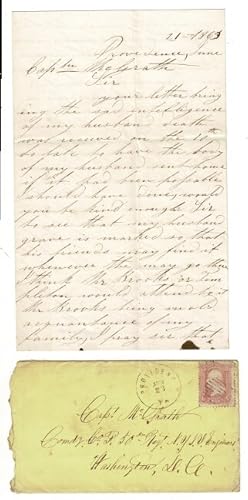 21-1863
Providence, June
Capt McGrath
Sir
your letter bring
ing the sad intelligence
of my husband death
was received on the 10
to take I have the body
of my husband sent home
if it had been possible
should have done, would
you be kind enough Sir
to see that my husband
grave is marked so that
his friends may find it
whenever the may go there
I think Mr Brooks or Tem
pleton would attend to it
Mr Brooks being an old
acquaintance of my
family, I pray sir that
PROVIDENCE
JUN
Capt McGrath
Comdg Co F. 50th Regt N.Y.S.V. Engineers
Washington, D.C.